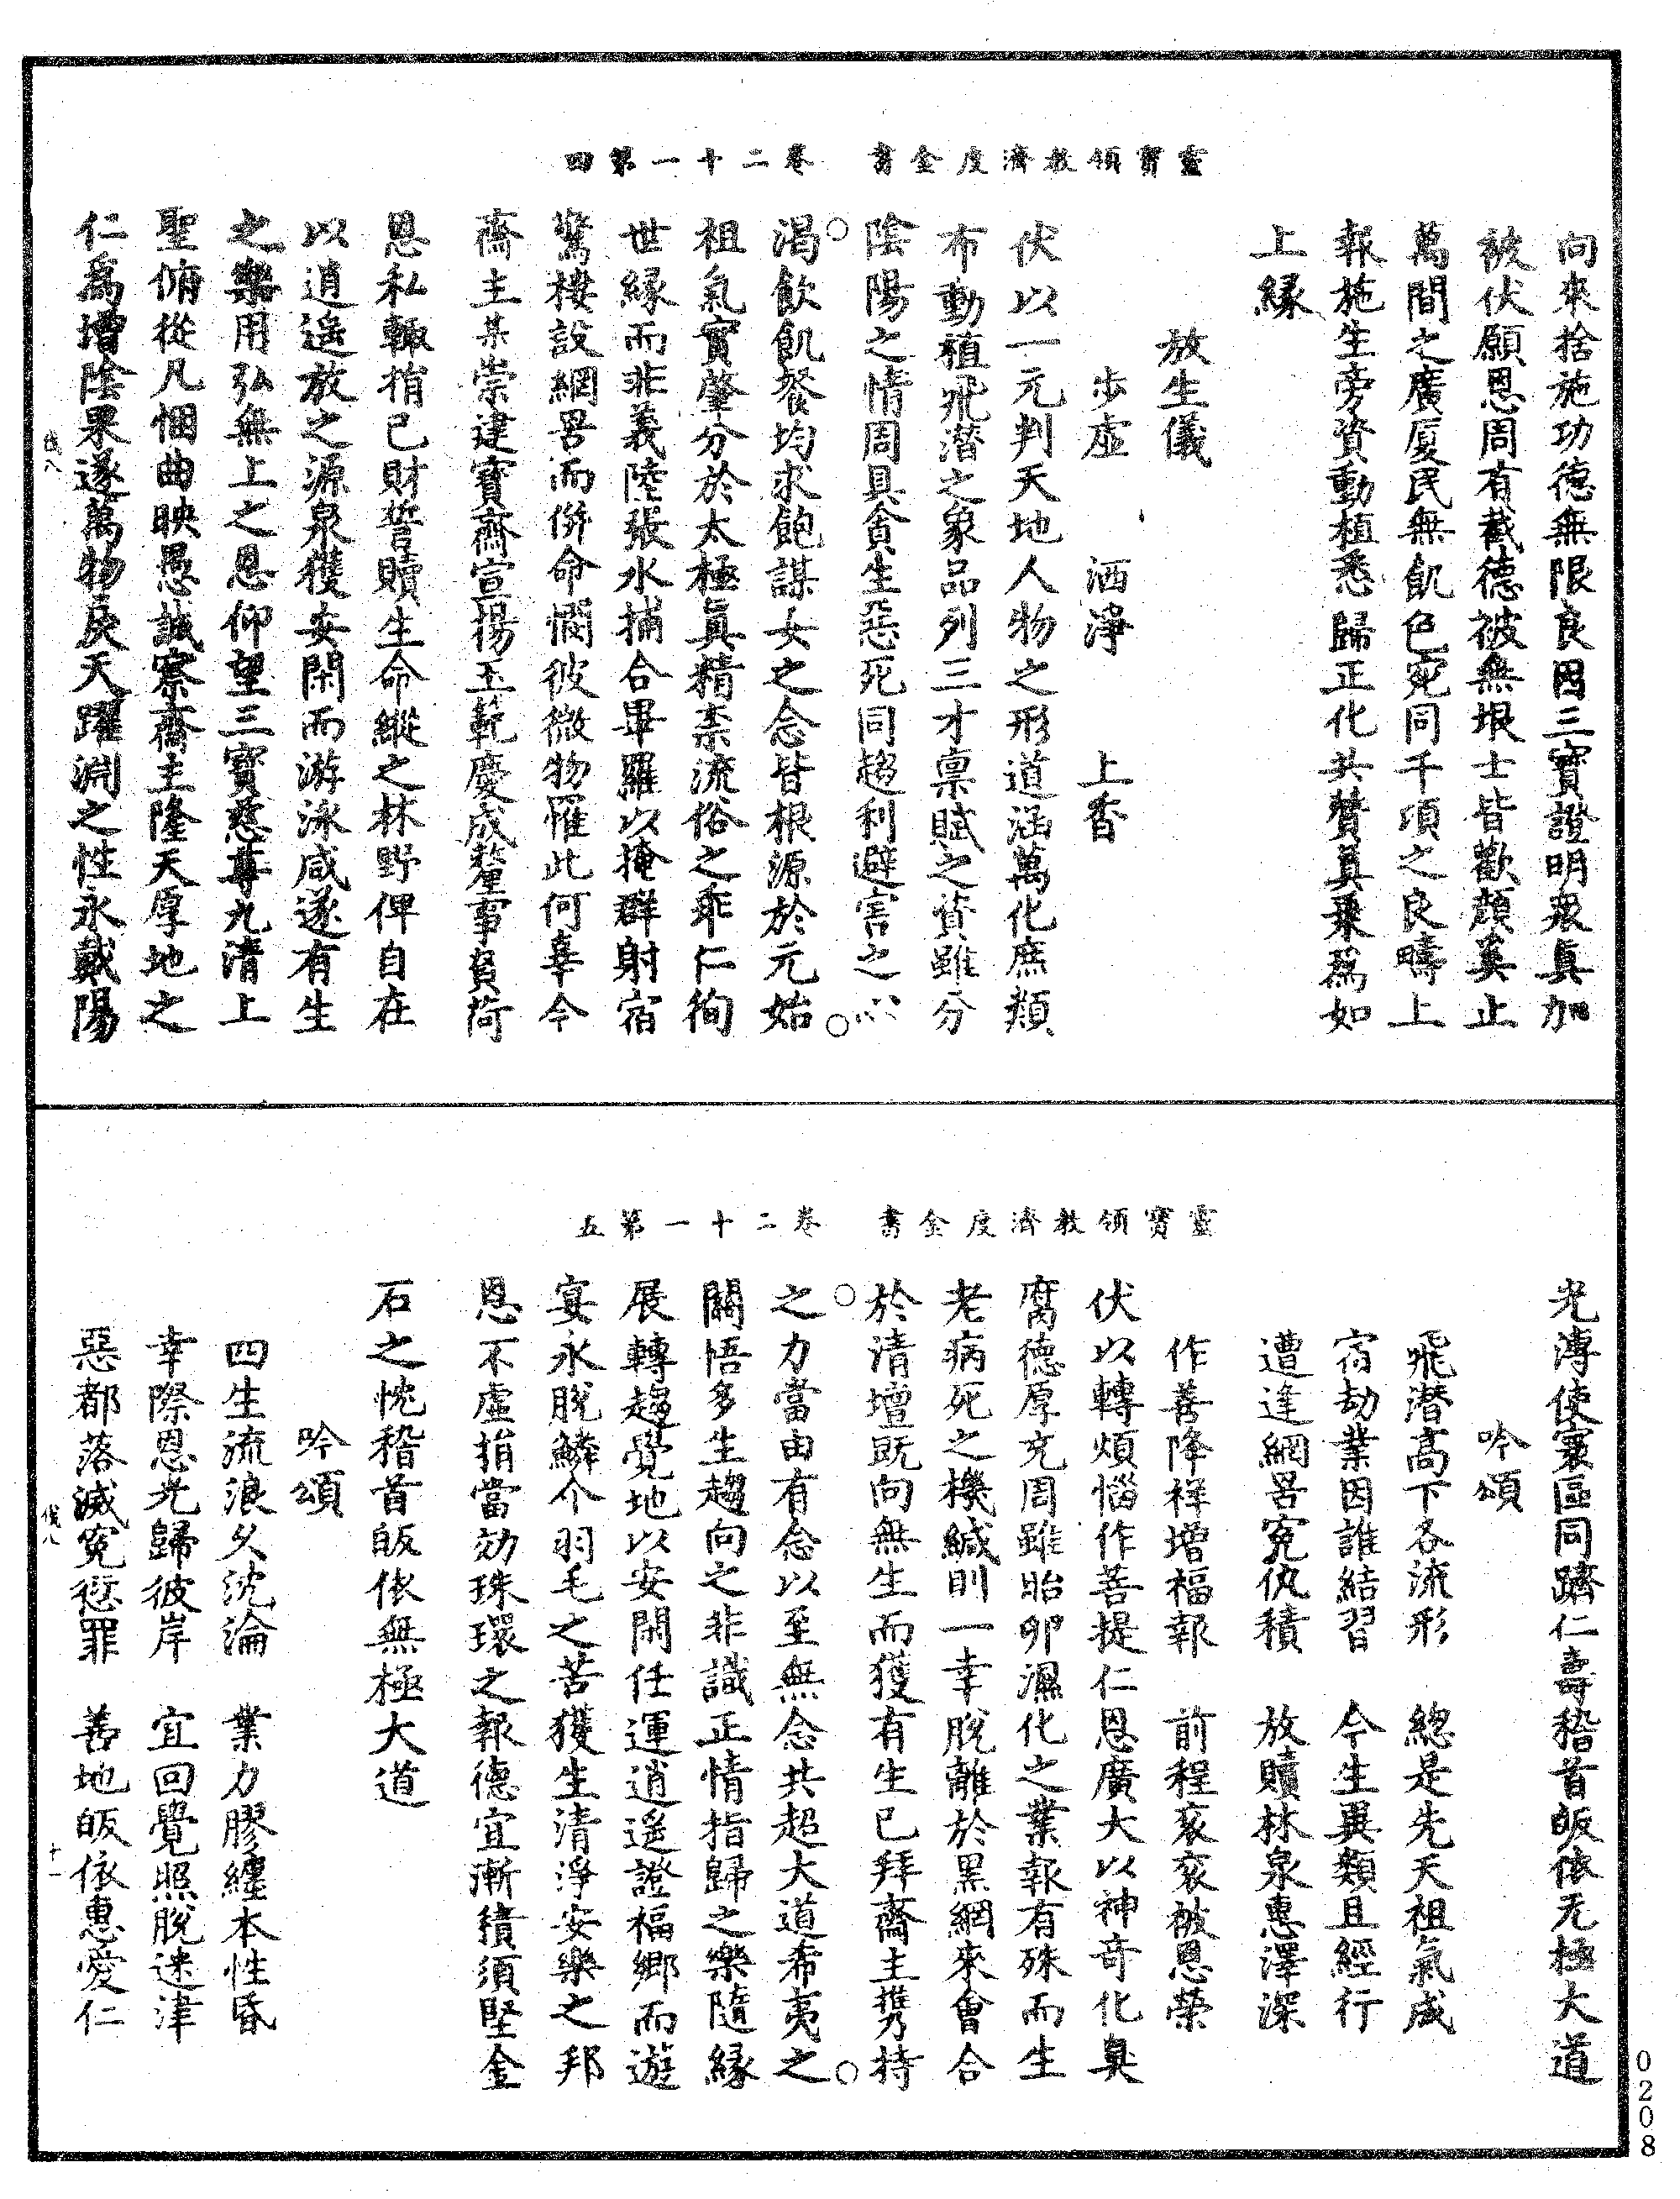 靈寶領教濟度金書　卷二十一第四
向來捨施功德無限良因三寶證明衆眞加
被伏願恩周有截德被無垠士皆歡顏奚止
萬間之廣厦民無飢色宛同千項之良疇上
報施生旁資動植悉歸正化共贊眞乘爲如
上緣
放生儀
步虛　洒淨　上香
伏以一元判天地人物之形道涵萬化庶類
布動植飛潛之象品列三才禀賦之貲雖分
陰陽之情周具貪生惡死同趨利避害之心
渴飲飢餐均求飽謀女之念皆根源於元始
祖氣實肇分於太極眞精柰流俗之乖仁徇
世緣而非義陸張水捕合畢羅以掩群射宿
驚棲設網罟而倂命憫彼微物罹此何辜今
齋主某崇建寶齋宣揚玉範慶成釐事貧荷
恩私輒捐己財誓贖生命縱之林野俾自在
以逍遙放之源泉獲安閑而游泳咸遂有生
之樂用弘無上之恩仰望三寶慈尊九清上
聖俯從凡悃曲映愚誠察齋主隆天厚地之
仁爲增陰果遂萬物戾天躍淵之性永戴陽
靈寶領教濟度金書　卷二十一第五
光溥使寰區同躋仁壽稽首皈依无極大道
吟頌
飛潛高下各流形　總是先天祖氣成
宿劫業因誰結習　今生異類且經行
遭逢網罟寃仇積　放贖林泉惠澤深
作善降祥增福報　前程衮衮被恩榮
伏以轉煩惱作菩提仁恩廣大以神奇化臭
腐德厚充周雖胎卵濕化之業報有殊而生
老病死之機緘則一幸脫離於黑網來會合
於清壇旣向無生而獲有生已拜齋主携持
之力當由有念以至無念共超大道希夷之
關悟多生趨向之非識正情指歸之樂隨緣
展轉趨覺地以安閑任運逍遙證福鄉而遊
宴永脫鱗介羽毛之苦獲生清淨安樂之邦
恩不虛捐當効珠環之報德宜漸積須堅金
石之忱稽首皈依無極大道
吟頌
四生流浪久沈淪　業力膠纏本性昏
幸際恩光歸彼岸　宜回覺照脫迷津
惡都落滅寃愆罪　善地皈依惠愛仁
十一
0208